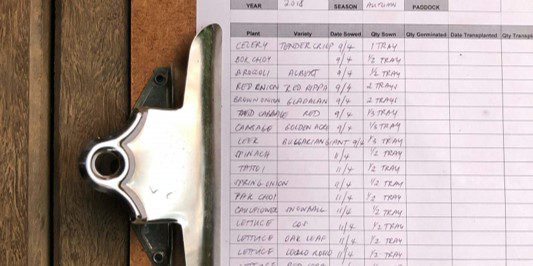 YEAR 2018 SEASON AUTUMN PADDOCK
Plant Variety Date Sowed Qty Sown Qty Germinated Date Transplanted Qty Transp
CELERY TENDER CRISP 9/4 1 TRAY
BOK CHOY 9/4 1/2 TRAY
BROCCOLI ALBERT 9/4 1/2 TRAY
RED ONION RED RIPPA 9/4 2 TRAYS
BROWN ONION GLADALAN 9/4 2 TRAYS
CABBAGE RED 9/4 1/3 TRAY
CABBAGE GOLDEN ACRE 9/4 1/3 TRAY
LEEK BULGARIAN GIANT 9/4 TRAY
SPINACH 11/4 1/2 TRAY
TATSOI 11/4 1/2 TRAY
SPRING ONION 11/4 1/2 TRAY
PAK CHOI 11/4 1/2 TRAY
CAULIFLOWER SNOWBALL 11/4 1/2 TRAY
LETTUCE COS 11/4 1/2 TRAY
LETTUCE OAK LEAF 11/4 1/2 TRAY
LETTUCE LOLLO ROSSO 11/4 1/2 TRAY
LETTUCE